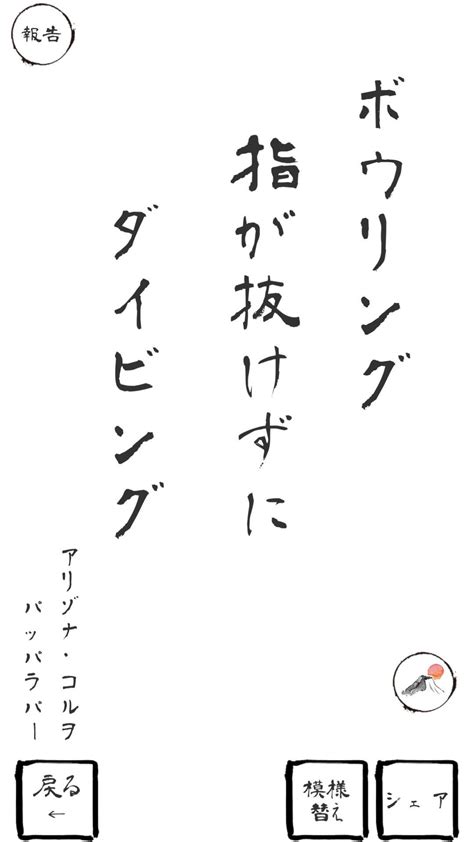 報告
ボウリング
指が抜けずに
ダイビング
アリゾナ・コルヲ
パッパラパー
戻る
←
模様
替え
シェア